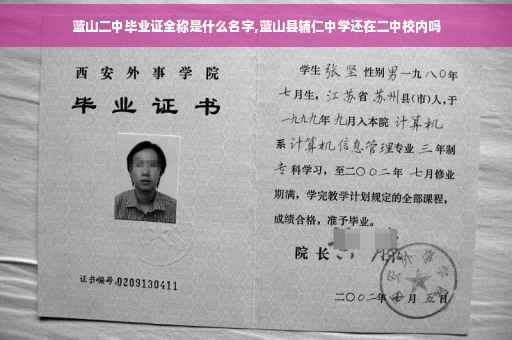 蓝山二中毕业证全称是什么名字,蓝山县辅仁中学还在二中校内吗
西安外事学院
毕业证书
证书编号:0209130411
学生 张坚 性别 男 一九八〇年
七月生，江苏省 苏州县(市)人,于
一九九九年 九月入本院 计算机
系 计算机信息管理专业 三 年制
专科学习，至二〇〇二年 七月修业
期满，学完教学计划规定的全部课程，
成绩合格，准予毕业。
院长
二〇〇二年 月 五日